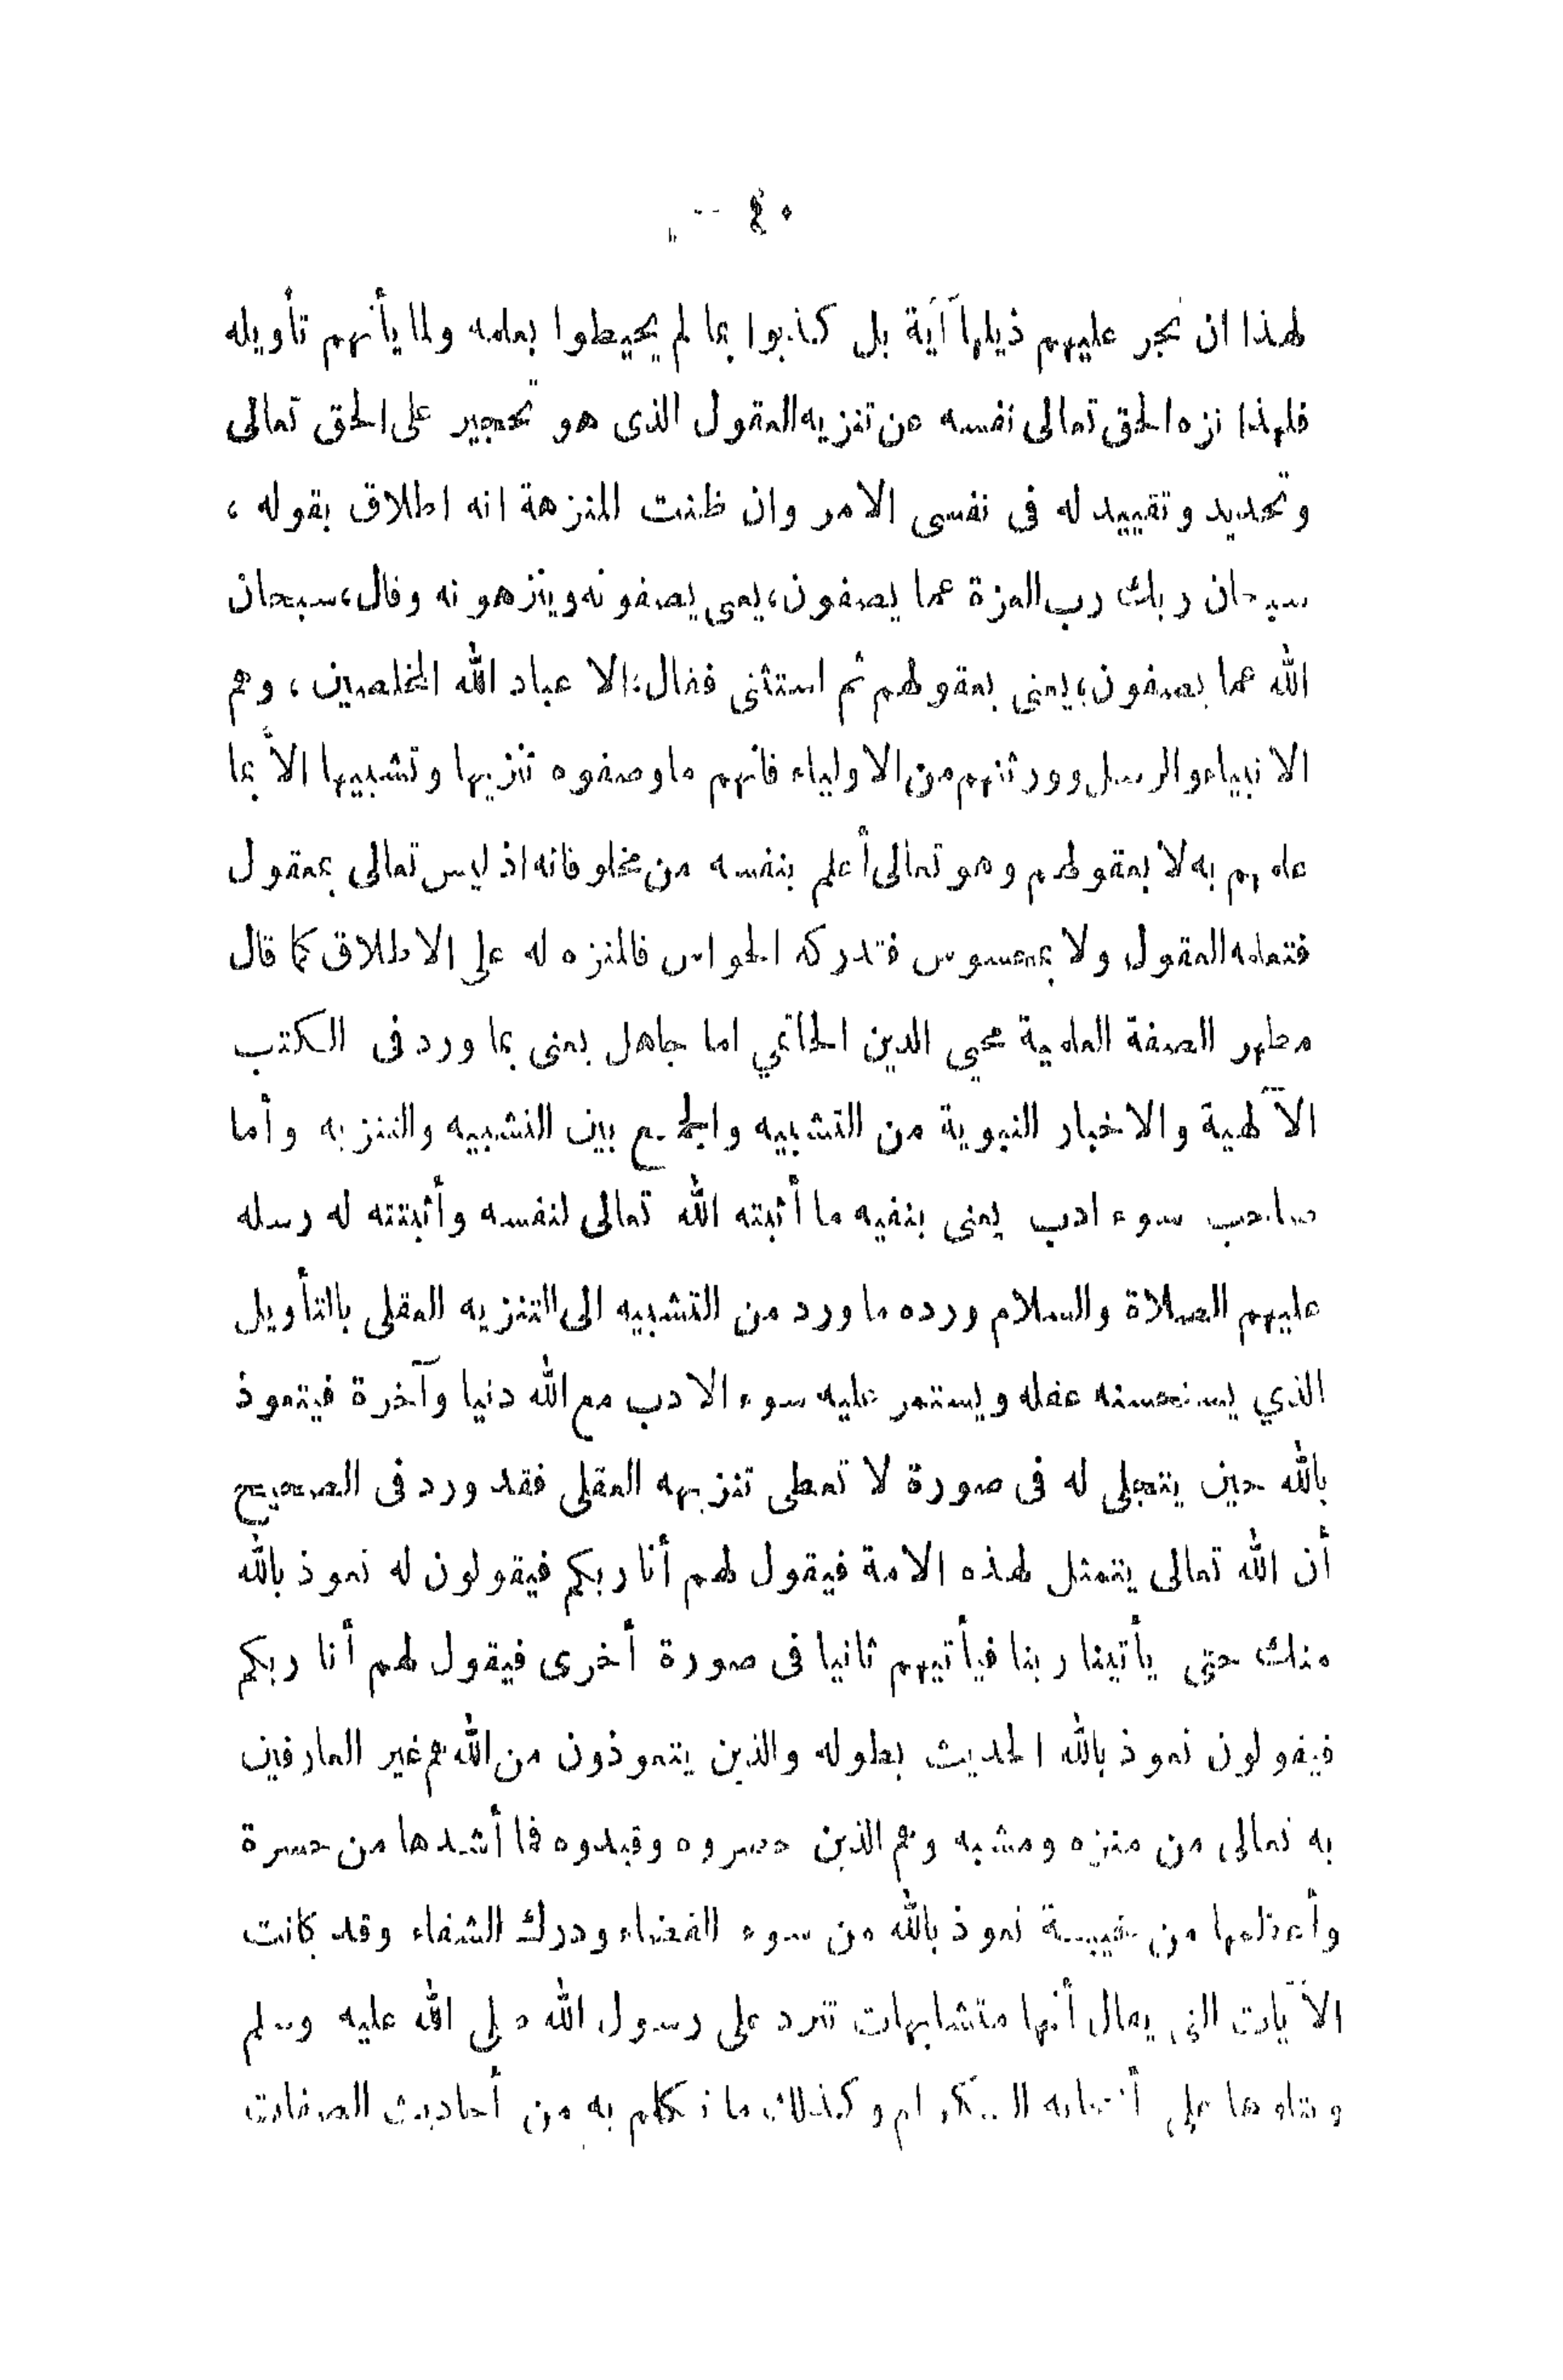 ٤٠
لهذا ان تجر عليهم ذيلها آية بل كذبوا بما لم يحيطوا بعلمه ولما يأتهم تأويله
فلهذا نزه الحق تعالى نفسه عن تنزيه العقول الذى هو تحجير على الحق تعالى
وتحديد وتقييد له فى نفس الامر وان ظنت المنزهة انه اطلاق بقوله ،
سبحان ربك رب العزة عما يصفون، يعنى يصفونه وينزهونه وقال، سبحان
الله عما يصفون، يعنى بعقولهم ثم استثنى فقال: الا عباد الله المخلصين ، وهم
الانبياء والرسل وورثتهم من الاولياء فانهم ما وصفوه تنزيها وتشبيها الاّ بما
علمهم به لا بعقولهم وهو تعالى أعلم بنفسه من مخلوقاته اذ ليس تعالى بمعقول
فتعلمه العقول ولا بمحسوس فتدركه الحواس فالمنزه له على الاطلاق كما قال
مظهر الصفة العلمية محيي الدين الحاتمي اما جاهل يعنى بما ورد فى الكتب
الآلهية والاخبار النبوية من التشبيه والجمع بين التشبيه والتنزيه وأما
صاحب سوء ادب يعنى بنفيه ما أثبته الله تعالى لنفسه وأثبتته له رسله
عليهم الصلاة والسلام ورده ما ورد من التشبيه الى التنزيه العقلى بالتأويل
الذي يستحسنه عقله ويستمر عليه سوء الادب مع الله دنيا وآخرة فيتعوذ
بالله حين يتجلى له فى صورة لا تعطى تنزيهه العقلى فقد ورد فى الصحيح
أن الله تعالى يتمثل لهذه الامة فيقول لهم أنا ربكم فيقولون له نعوذ بالله
منك حتى يأتينا ربنا فيأتيهم ثانيا فى صورة أخرى فيقول لهم أنا ربكم
فيقولون نعوذ بالله الحديث بطوله والذين يتعوذون من الله هم غير العارفين
به تعالى من منزه ومشبه وهم الذين حصروه وقيدوه فما أشدها من حسرة
وأعظمها من خيبة نعوذ بالله من سوء القضاء ودرك الشقاء وقد كانت
الآيات التى يقال أنها متشابهات ترد على رسول الله صلى الله عليه وسلم
ويتلوها على أصحابه الكرام وكذلك ما تكلم به من أحاديث الصفات